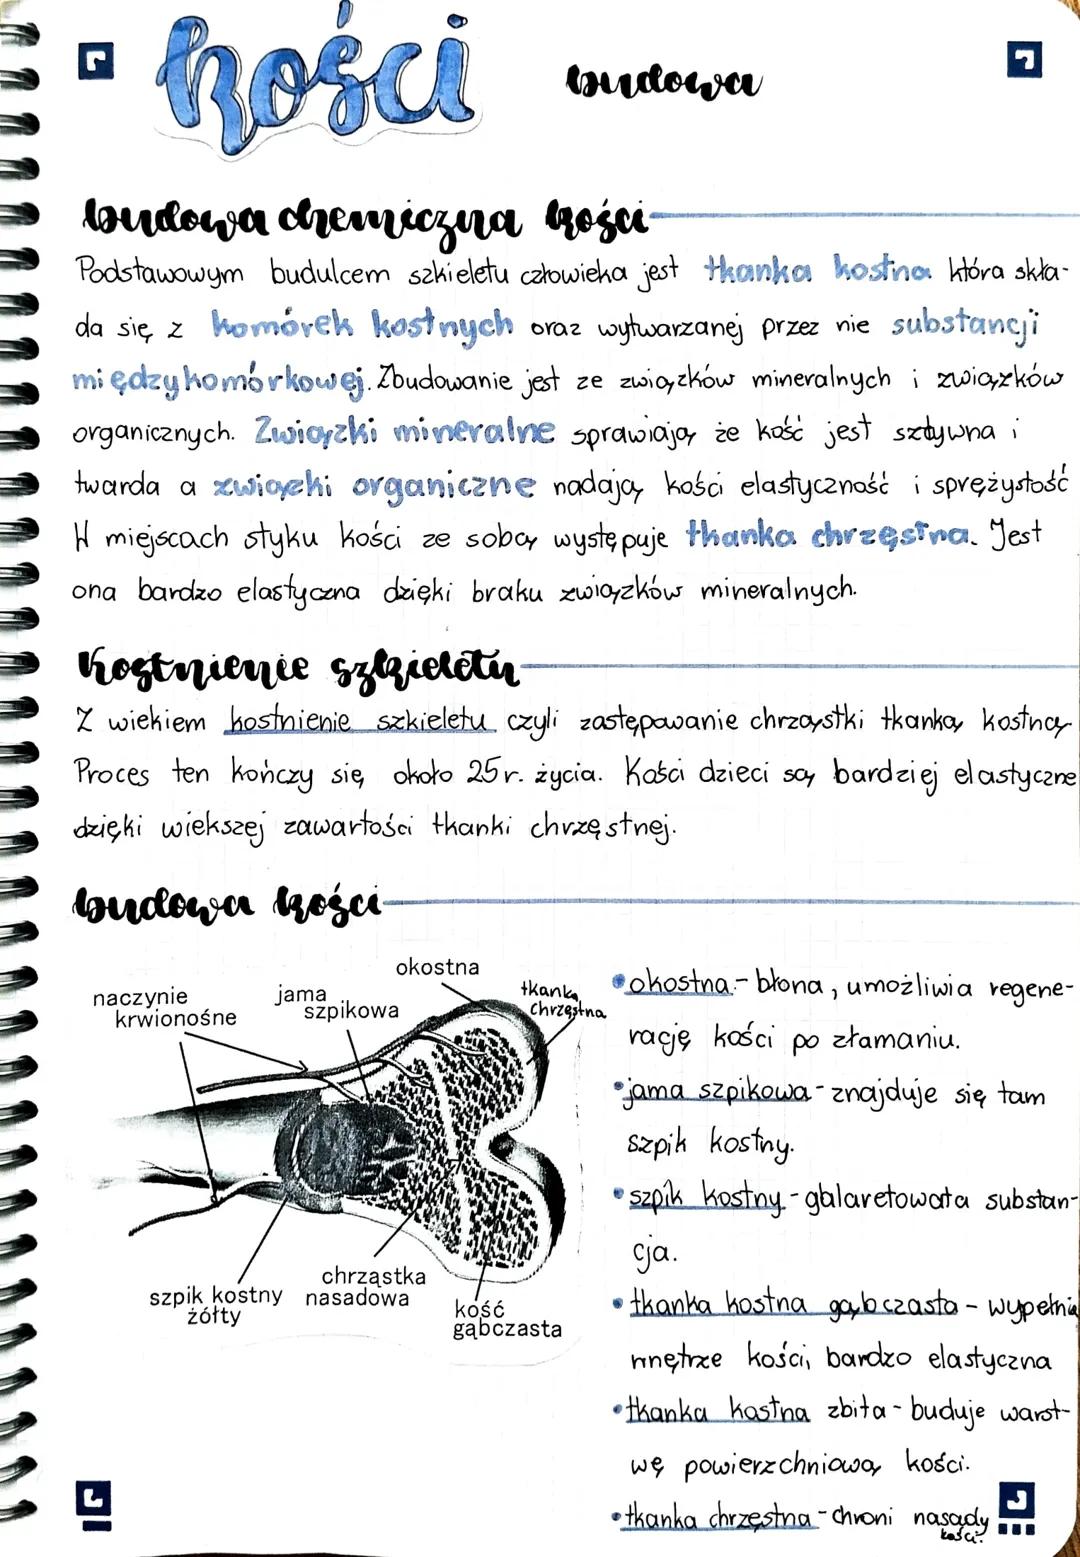 kości
budowa
budowa chemiczna kości
Podstawowym budulcem szkieletu człowieka jest tkanka kostna która skła-
da się z komórek kostnych oraz wytwarzanej przez nie substancji
międzykomórkowej. Zbudowanie jest ze związków mineralnych i związków
organicznych. Związki mineralne sprawiają że kość jest sztywna i
twarda a związki organiczne nadają kości elastyczność i sprężystość
W miejscach styku kości ze sobą występuje tkanka chrzęstna. Jest
ona bardzo elastyczna dzięki braku związków mineralnych.
Kostnienie szkieletu
Z wiekiem kostnienie szkieletu czyli zastępowanie chrząstki tkanką kostną
Proces ten kończy się około 25r. życia. Kości dzieci są bardziej elastyczne
dzięki wiekszej zawartości tkanki chrzęstnej.
budowa kości
okostna
naczynie
krwionośne
jama
szpikowa
tkanka
chrzęstna
szpik kostny
żółty
chrząstka
nasadowa
kość
gąbczasta
• okostna - błona, umożliwia regene-
rację kości po złamaniu.
• jama szpikowa - znajduje się tam
szpik kostny.
• szpik kostny - galaretowata substan-
cja.
• tkanka kostna gąbczasta - wypełnia
wnętrze kości, bardzo elastyczna
• tkanka kostna zbita - buduje warst-
wę powierzchniową kości.
• tkanka chrzęstna - chroni nasady
kości.